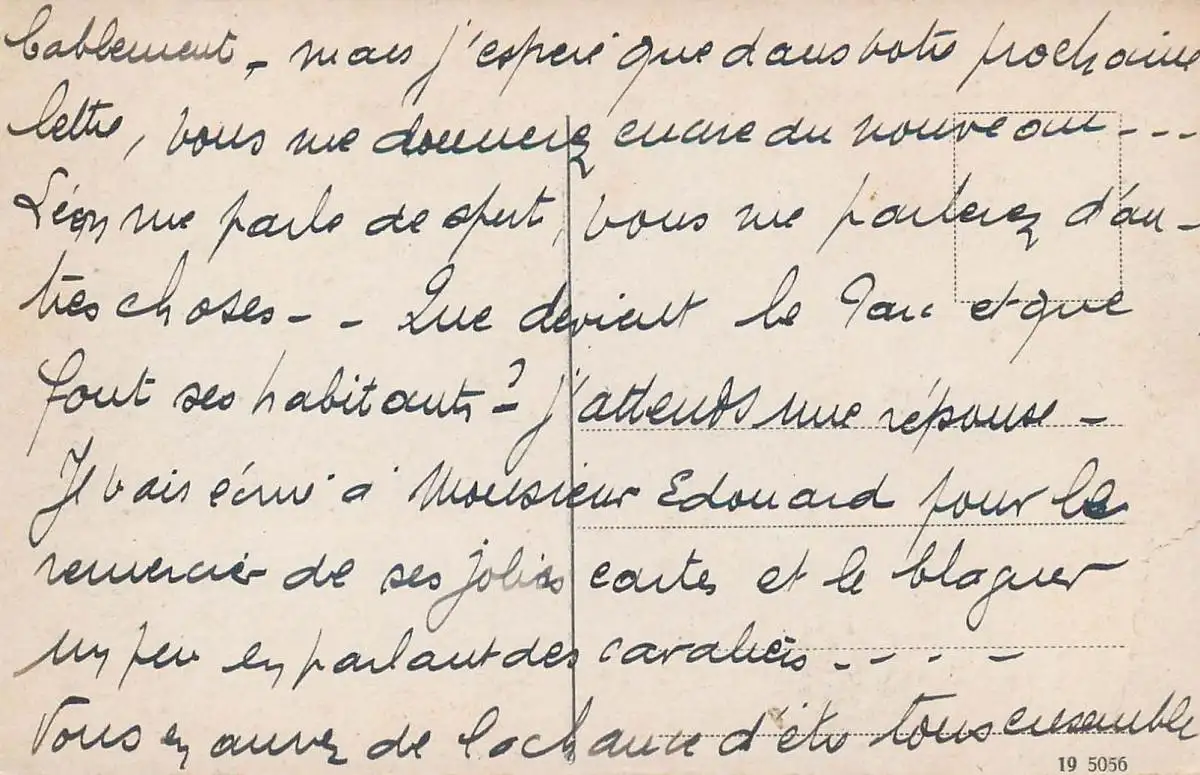 bablement - mais j'espère que dans votre prochaine
lettre, vous me donnerez encore du nouveau ---
Léon me parle de sport, vous me parlerez d'au-
tres choses - - Que devient le Parc et que
font ses habitants? - j'attends une réponse -
Je vais écrire à Monsieur Edouard pour le
remercier de ses jolies cartes et le blaguer
un peu en parlant des cavaliers - - - -
Vous en avez de la chance d'être tous ensemble
19 5056